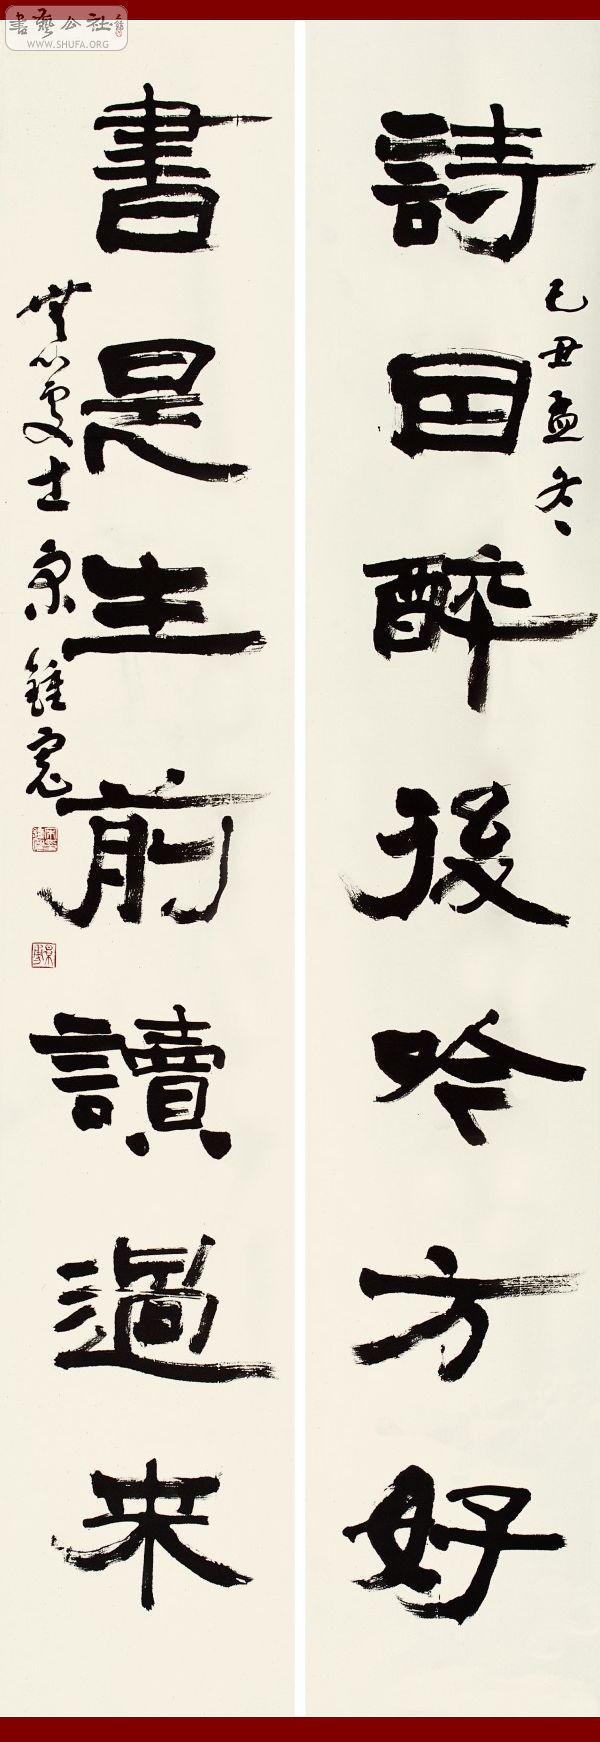 書藝公社
WWW.SHUFA.ORG
詩因醉後吟方好
己丑孟冬
書是生前讀過来